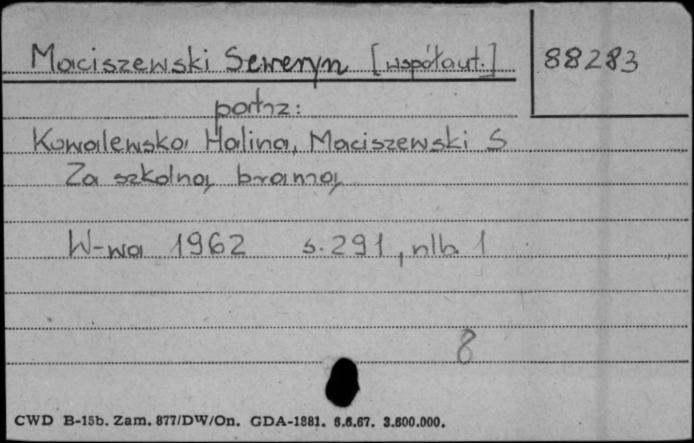 Maciszewski Seweryn [współaut.] 88283
patrz:
Kowalewska Halina, Maciszewski S
Za szkolną bramą
W-wa 1962 s. 291, nlb. 1
8
CWD B-15b. Zam. 877/DW/On. GDA-1881. 6.6.67. 3.800.000.